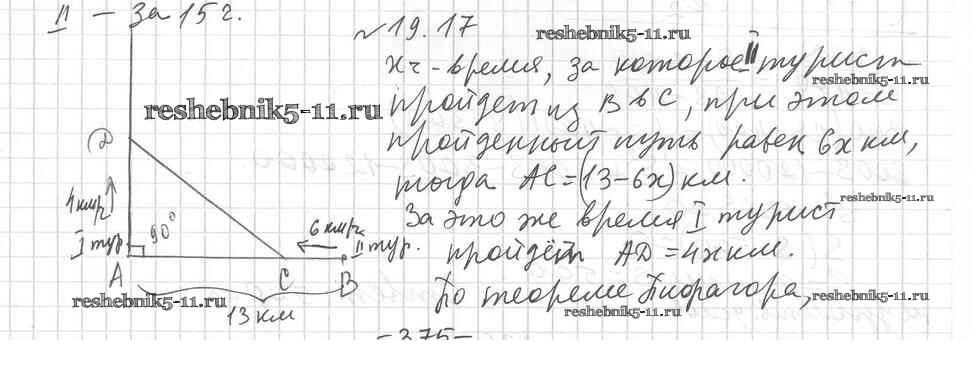 II – за 15 г.
№ 19.17
x ч - время, за которое II турист
пройдет из B в C, при этом
пройденный путь равен 6x км,
тогда AC = (13 – 6x) км.
За это же время I турист
пройдёт AD = 4x км.
По теореме Пифагора,
D
4 км/ч
90°
I тур
6 км/ч
II тур.
A
C
B
13 км
–375–
reshebnik5-11.ru
reshebnik5-11.ru
reshebnik5-11.ru
reshebnik5-11.ru
reshebnik5-11.ru
reshebnik5-11.ru
reshebnik5-11.ru